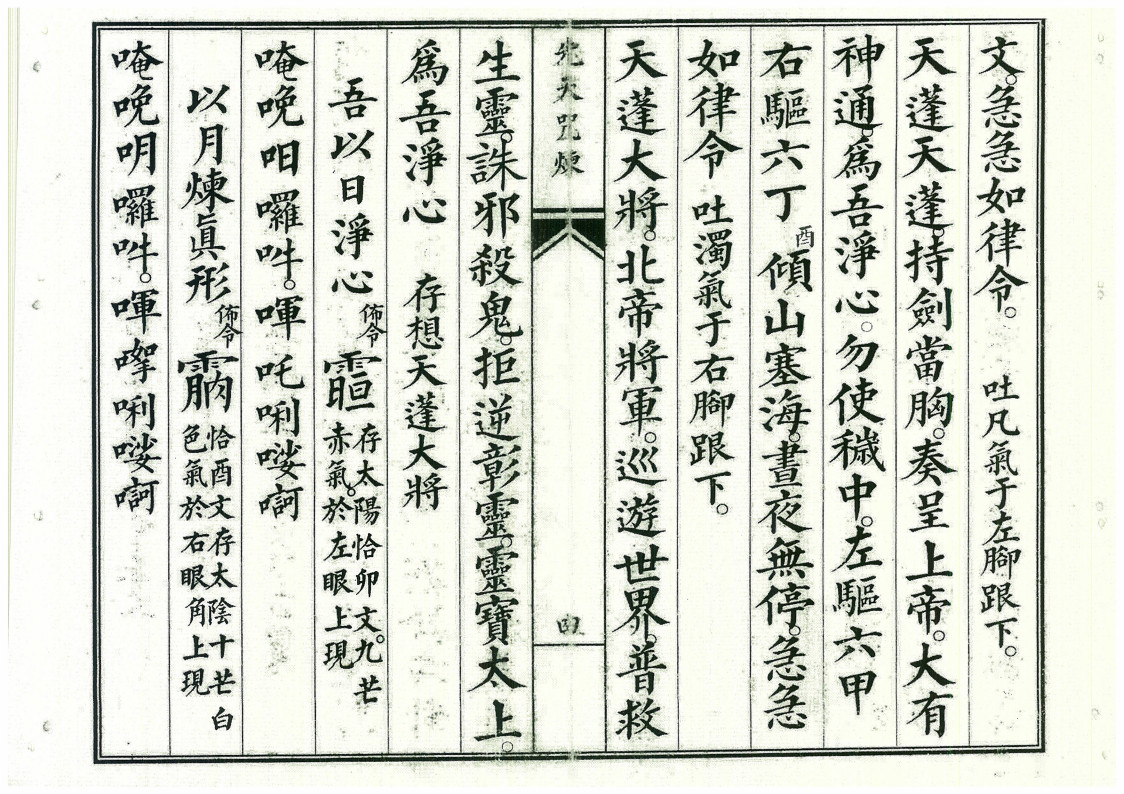 文。急急如律令。　吐凡氣于左腳跟下。
天蓬天蓬。持劍當胸。奏呈上帝。大有
神通。爲吾淨心。勿使穢中。左驅六甲
右驅六丁酉傾山塞海。晝夜無停。急急
如律令　吐濁氣于右腳跟下。
天蓬大將。北帝將軍。巡遊世界。普救
先天咒煉
四
生靈。誅邪殺鬼。拒逆彰靈。靈寶太上。
爲吾淨心　存想天蓬大將
吾以日淨心佈令䨻存太陽恰卯文。九芒
赤氣。於左眼上現
唵晚𠰸囉吽。喗吒唎㘕啊
以月煉眞形佈令恰酉文存太陰十芒白
色氣於右眼角上現
唵晚明囉吽。喗㗚唎